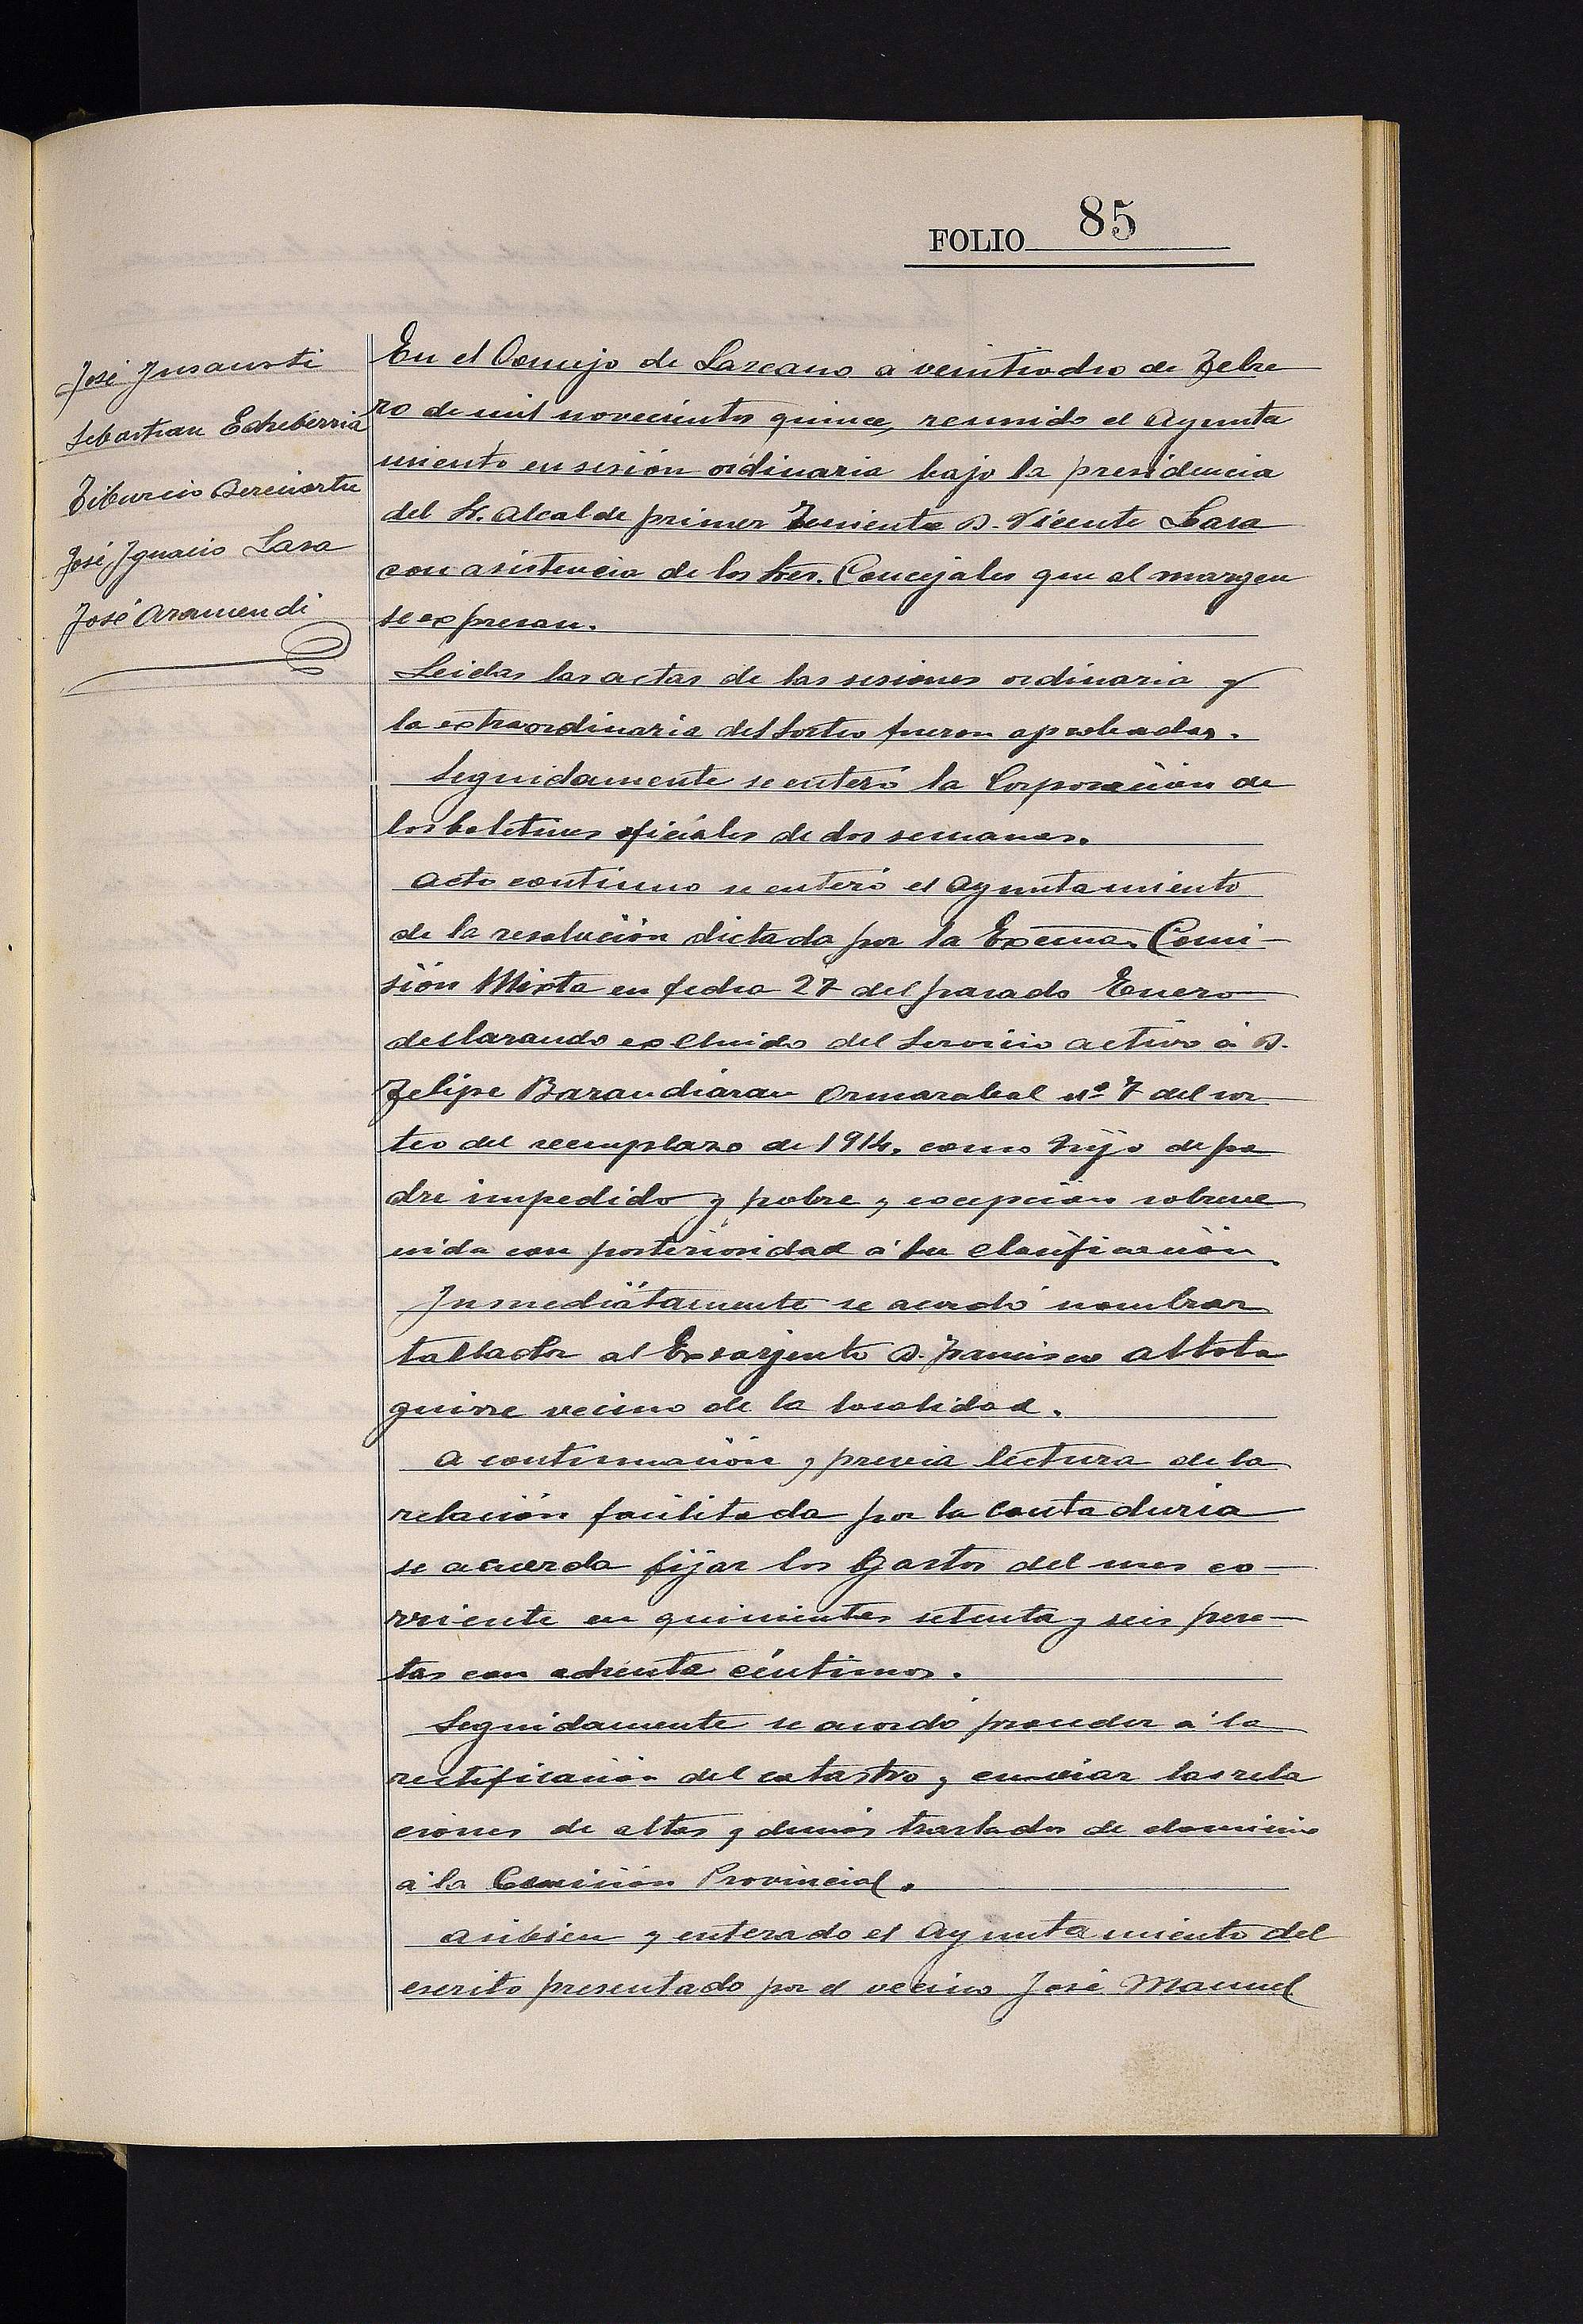 FOLIO 85
José Insausti
Sebastian Echeberria
Tiburcio Bereciartu
José Ignacio Lasa
José Aramendi
En el Concejo de Lazcano á veintiocho de Febre
ro de mil novecientos quince, reunido el Ayunta
miento en sesión ordinaria bajo la presidencia
del Sr. Alcalde primer Teniente D. Vicente Lasa
con asistencia de los Sres. Concejales que al margen
se expresan.
Leidas las actas de las sesiones ordinaria y
la extraordinaria del Sorteo fueron aprobadas.
Seguidamente se enteró la Corporación de
los boletines oficiales de dos semanas.
Acto continuo se enteró el Ayuntamiento
de la resolución dictada por la Excma. Comi-
sión Mixta en fecha 27 del pasado Enero
declarando excluido del Servicio activo á D.
Felipe Barandiaran Ormazabal nº 7 del sor
teo del reemplazo de 1914. como hijo de pa
dre impedido y pobre y excepción sobreve
nida con posterioridad á su clasificación
Inmediatamente se acordó nombrar
tallador al Exsarjento D. Francisco Altola
guirre vecino de la localidad.
A continuación y previa lectura de la
relación facilitada por la Contaduria
se acuerda fijar los Gastos del mes co-
rriente en quinientas setenta y seis pese-
tas con ochenta céntimos.
Seguidamente se acordó proceder á la
rectificación del catastro y enviar las rela
ciones de altas y demás traslados de dominio
á la Comisión Provincial.
Asibien y enterado el Ayuntamiento del
escrito presentado por el vecino José Manuel